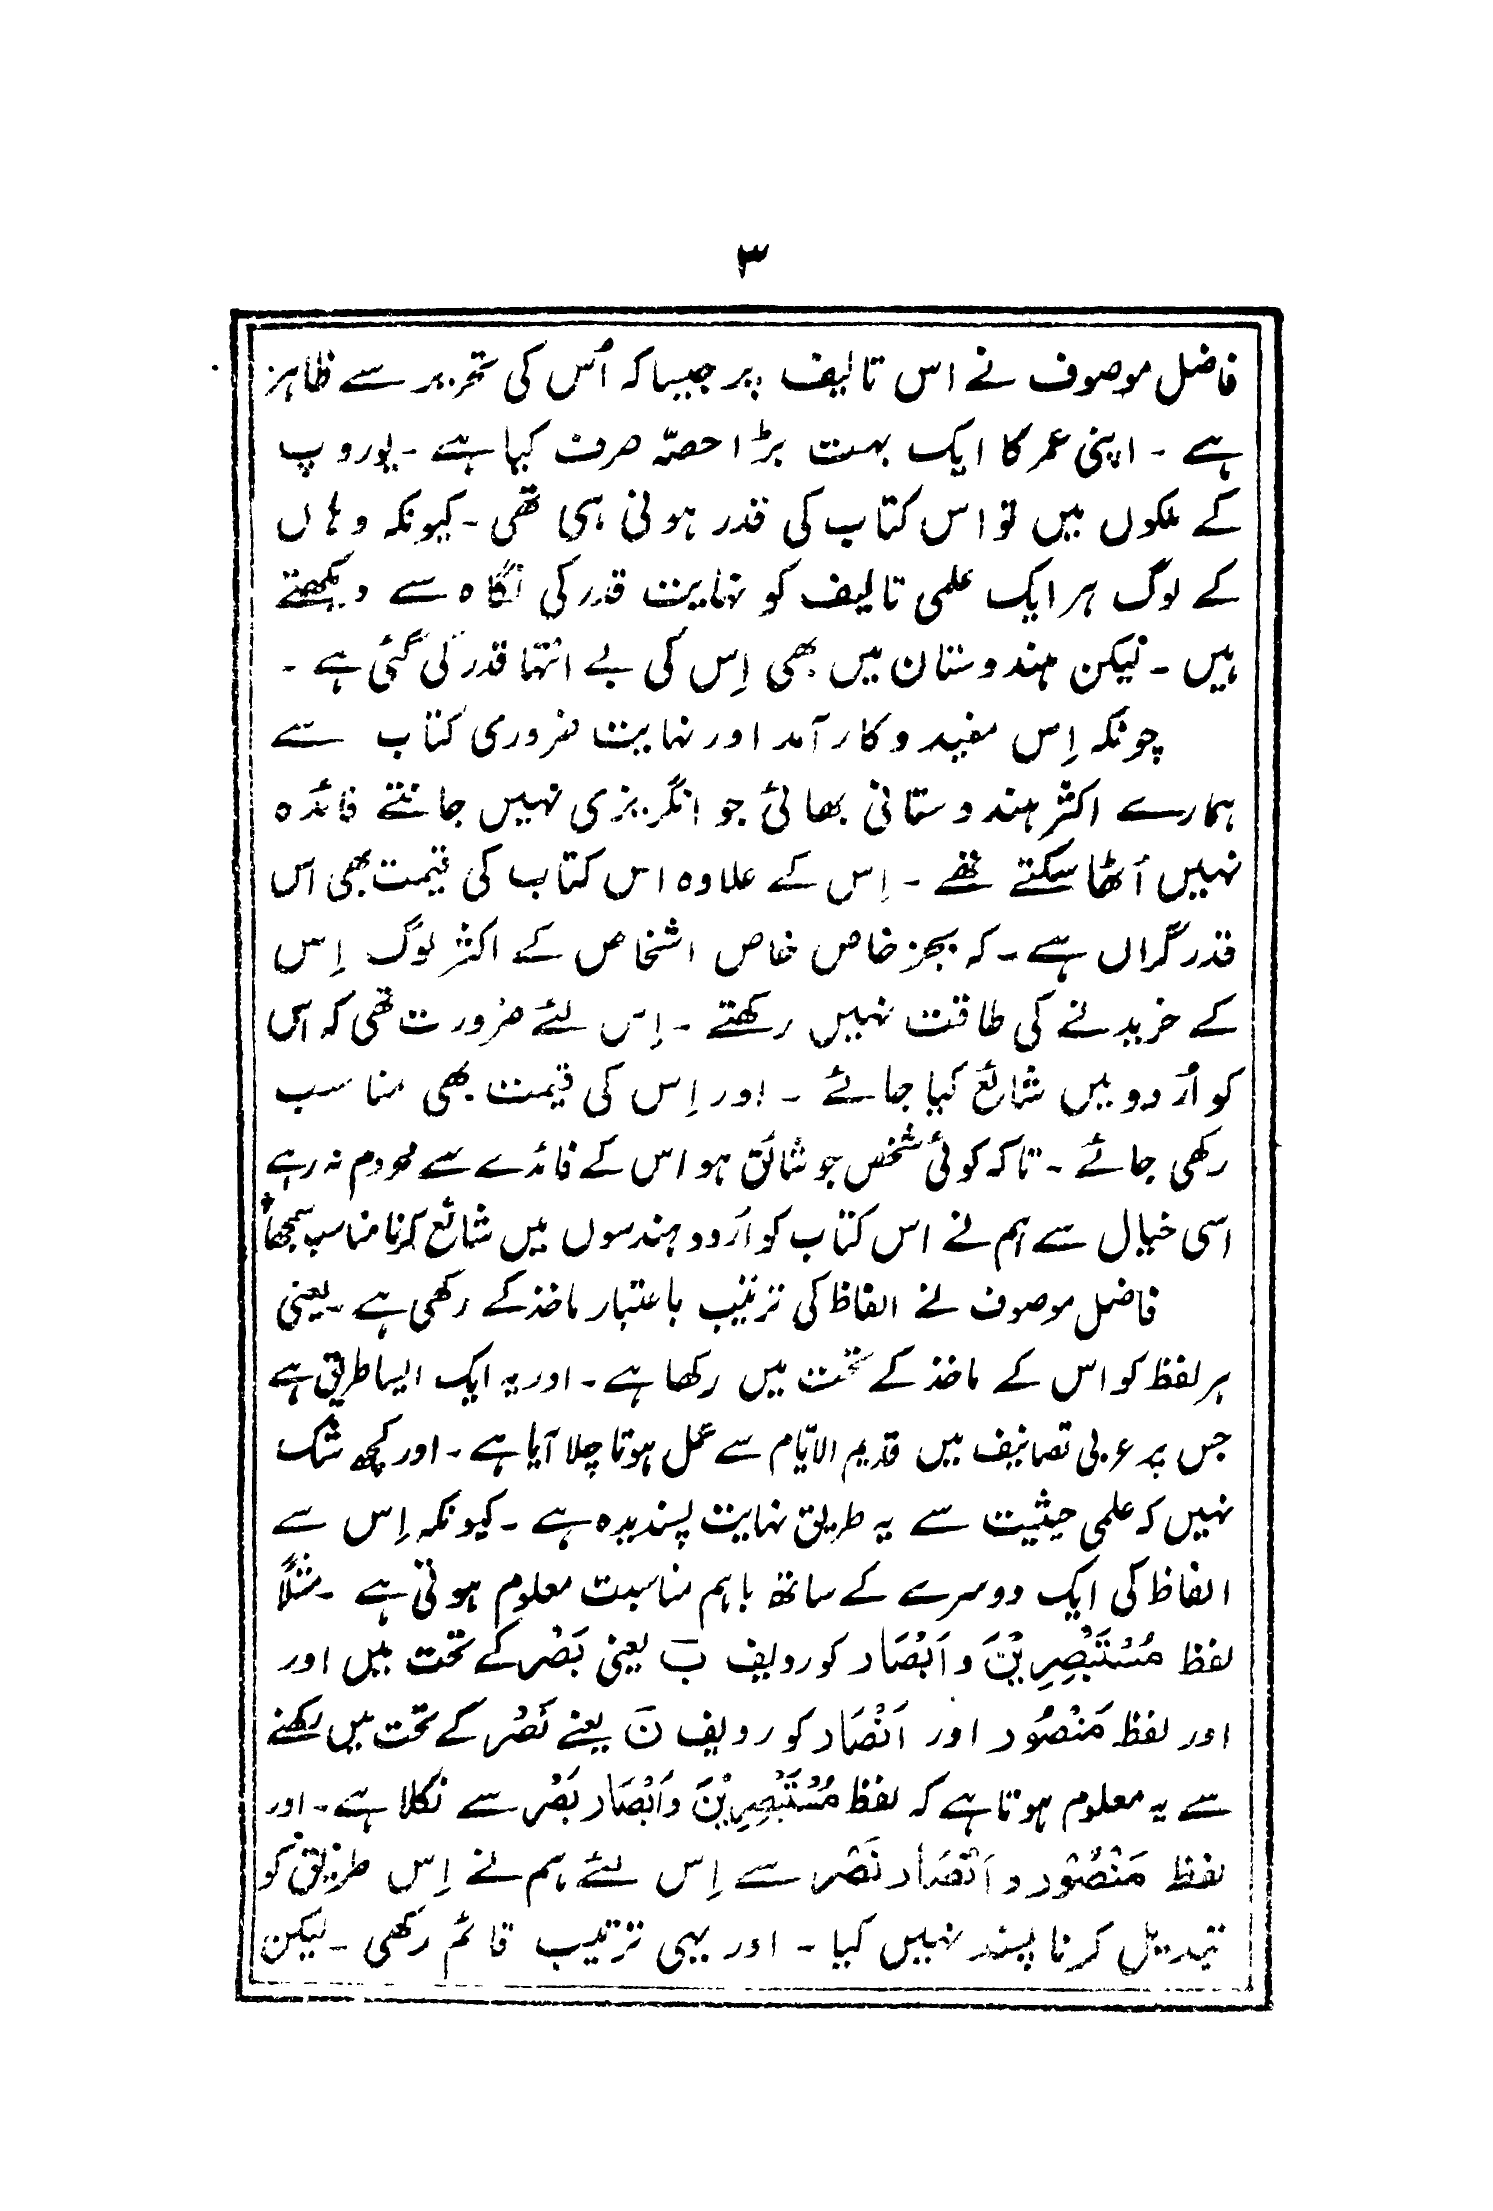 ۳
فاضل موصوف نے اس تالیف پر جیسا کہ اُس کی تحریر سے ظاہر
ہے ۔ اپنی عمر کا ایک بہت بڑا حصّہ صرف کیا ہے ۔ یوروپ
کے ملکوں میں تو اس کتاب کی قدر ہونی ہی تھی ۔ کیونکہ وہاں
کے لوگ ہر ایک علمی تالیف کو نہایت قدر کی نگاہ سے دیکھتے
ہیں ۔ لیکن ہندوستان میں بھی اِس کی بے انتہا قدر کی گئی ہے ۔
چونکہ اِس مفید و کار آمد اور نہایت ضروری کتاب سے
ہمارے اکثر ہندوستانی بھائی جو انگریزی نہیں جانتے فائدہ
نہیں اُٹھا سکتے تھے ۔ اِس کے علاوہ اس کتاب کی قیمت بھی اس
قدر گراں ہے ۔ کہ بجز خاص خاص اشخاص کے اکثر لوگ اِس
کے خریدنے کی طاقت نہیں رکھتے ۔ اِس لئے ضرورت تھی کہ اس
کو اُردو میں شائع کیا جائے ۔ اور اِس کی قیمت بھی مناسب
رکھی جائے ۔ تاکہ کوئی شخص جو شائق ہو اس کے فائدے سے محروم نہ رہے
اسی خیال سے ہم نے اس کتاب کو اُردو ہندسوں میں شائع کرنا مناسب سمجھا
فاضل موصوف نے الفاظ کی ترتیب باعتبار ماخذ کے رکھی ہے ۔ یعنی
ہر لفظ کو اس کے ماخذ کے تحت میں رکھا ہے ۔ اور یہ ایک ایسا طریق ہے
جس پر عربی تصانیف میں قدیم الایّام سے عمل ہوتا چلا آیا ہے ۔ اور کچھ شک
نہیں کہ علمی حیثیت سے یہ طریق نہایت پسندیدہ ہے ۔ کیونکہ اِس سے
الفاظ کی ایک دوسرے کے ساتھ باہم مناسبت معلوم ہوتی ہے ۔ مثلًا
لفظ مُسْتَبْصِرِیْنَ و اَبْصَار کو ردیف ب یعنی بَصْر کے تحت میں اور
اور لفظ مَنْصُور اور اَنْصَار کو ردیف ن یعنے نَصْر کے تحت میں رکھنے
سے یہ معلوم ہوتا ہے کہ لفظ مُسْتَبْصِرِیْنَ و اَبْصَار بَصْر سے نکلا ہے ۔ اور
لفظ مَنْصُوْر و اَنْصَار نَصْر سے اِس لئے ہم نے اِس طریق کو
تبدیل کرنا پسند نہیں کیا ۔ اور یہی ترتیب قائم رکھی ۔ لیکن